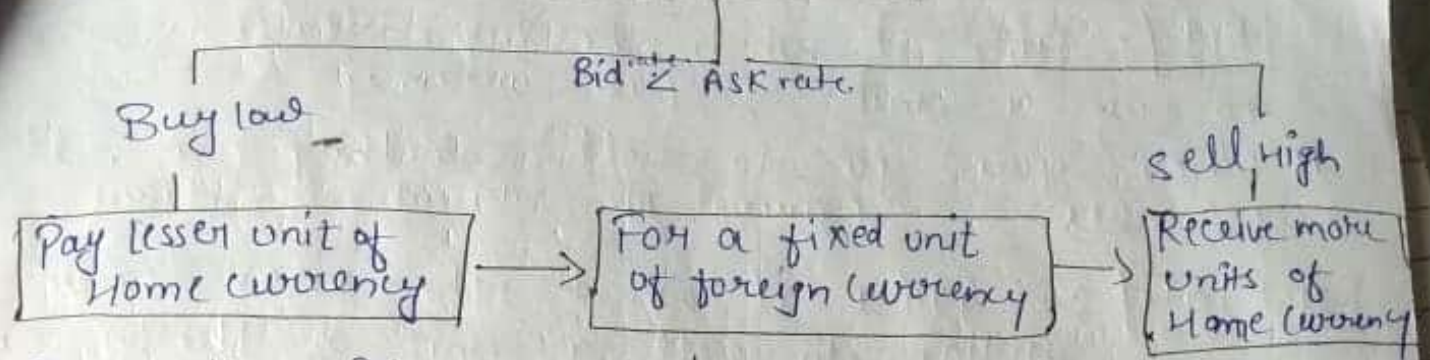 Bid rate < ASK rate.
Buy low
sell High
Pay lesser unit of
Home currency
For a fixed unit
of foreign currency
Receive more
units of
Home Currency